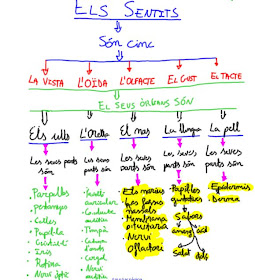 ELS SENTITS
Són cinc
LA VISTA L'OÏDA L'OLFACTE EL GUST EL TACTE
EL SEUS ÒRGANS SÓN
Els ulls L'Orella El nas La llengua La pell
Les seves parts són Les seves parts són Les seves parts són Les seves parts són Les seves parts són
- Parpelles
- pestanyes
- Celles
- Pupil·la
- Iris
- Retina
- Nervi òptic
- Pavelló auricular
- Conducte auditiu
- Timpà
- Nervi auditiu
- Els narius
- Les fosses nassals
- Membrana pituitaria
- Nervi olfactori
- Papil·les gustatives
Sabors
amarg àcid
Salat dolç
- Epidermis
- Dermis